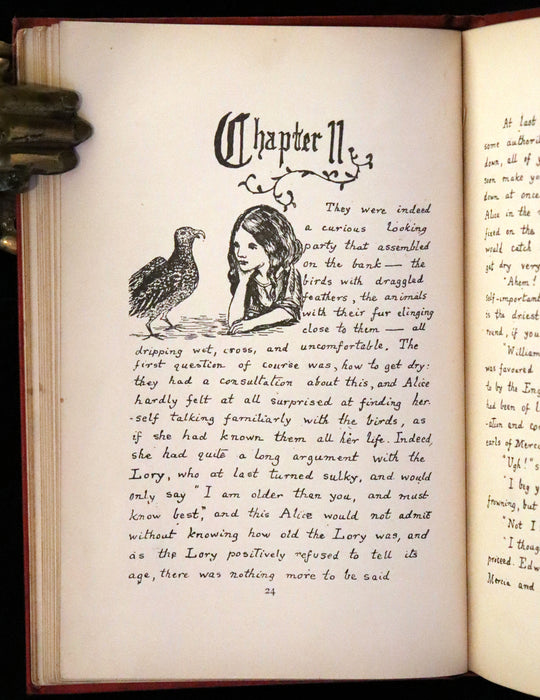 Chapter II
They were indeed
a curious looking
party that assembled
on the bank — the
birds with draggled
feathers, the animals
with their fur clinging
close to them — all
dripping wet, cross, and uncomfortable. The
first question of course was, how to get dry:
they had a consultation about this, and Alice
hardly felt at all surprised at finding her-
-self talking familiarly with the birds, as
if she had known them all her life. Indeed,
she had quite a long argument with the
Lory, who at last turned sulky, and would
only say "I am older than you, and must
know best," and this Alice would not admit
without knowing how old the Lory was, and
as the Lory positively refused to tell its
age, there was nothing more to be said
24
At last
some authori
down, all of y
soon make yo
down at once
Alice in the
fixed on the
would catch
get dry very
"Ahem!
self-important
is the driest
round, if you
"William
was favoured
to by the Eng
had been of l
-ation and con
earls of Merc
"Ugh!" s
"I beg y
frowning, but
"Not I
"I thoug
proceed. Edw
Mercia and